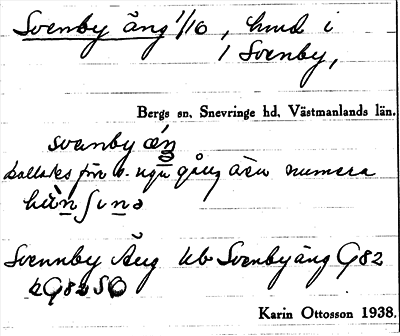 Svenby äng 1/16, hmd i
1 Svenby,
Bergs sn, Snevringe hd, Västmanlands län.
svenby
kallades för gång även numera
Svennby Äng Ub Svenbyäng G82
Karin Ottosson 1938.